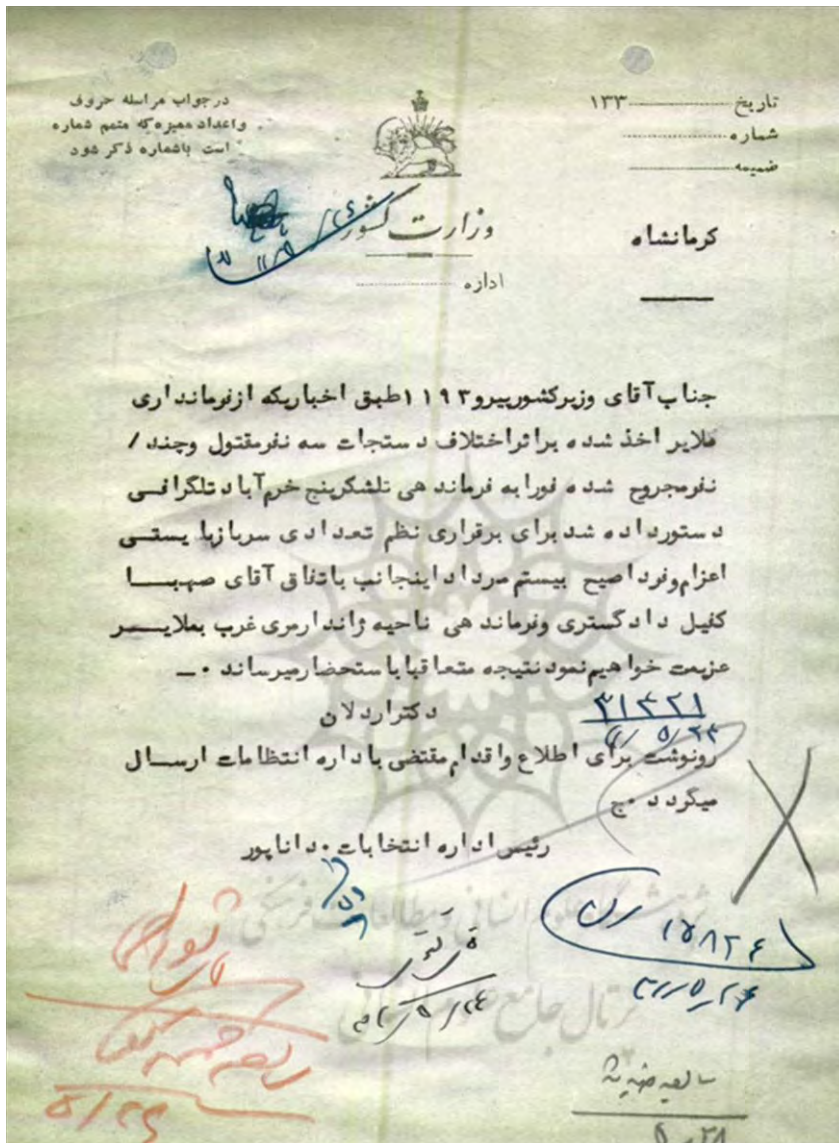 در جواب مراسله حروف
و اعداد ممیزه که متمم شماره
است باشماره ذکر شود
تاریخ ۱۳۳
شماره
ضمیمه
وزارت کشور
اداره
کرمانشاه
جناب آقای وزیر کشور پیرو ۱۱۹۳ طبق اخباریکه از فرمانداری
ملایر اخذ شده بر اثر اختلاف دستجات سه نفر مقتول و چند /
نفر مجروح شده فورا به فرماندهی تلشکرپنج خرم آباد تلگرافی
دستور داده شد برای برقراری نظم تعدادی سرباز بایستی
اعزام و فردا صبح بیستم مرداد اینجانب باتفاق آقای صهبا
کفیل دادگستری و فرماندهی ناحیه ژاندارمری غرب بملایر
عزیمت خواهیم نمود نتیجه متعاقبا باستحضار میرساند ۰ــ
دکتر اردلان
۳۱۴۲۱
رونوشت برای اطلاع و اقدام مقتضی باداره انتظامات ارسال
میگردد ۰ج
رئیس اداره انتخابات ۰ داناپور
۱۵۸۲۴
پژوهشگاه علوم انسانی و مطالعات فرهنگی
پرتال جامع علوم انسانی